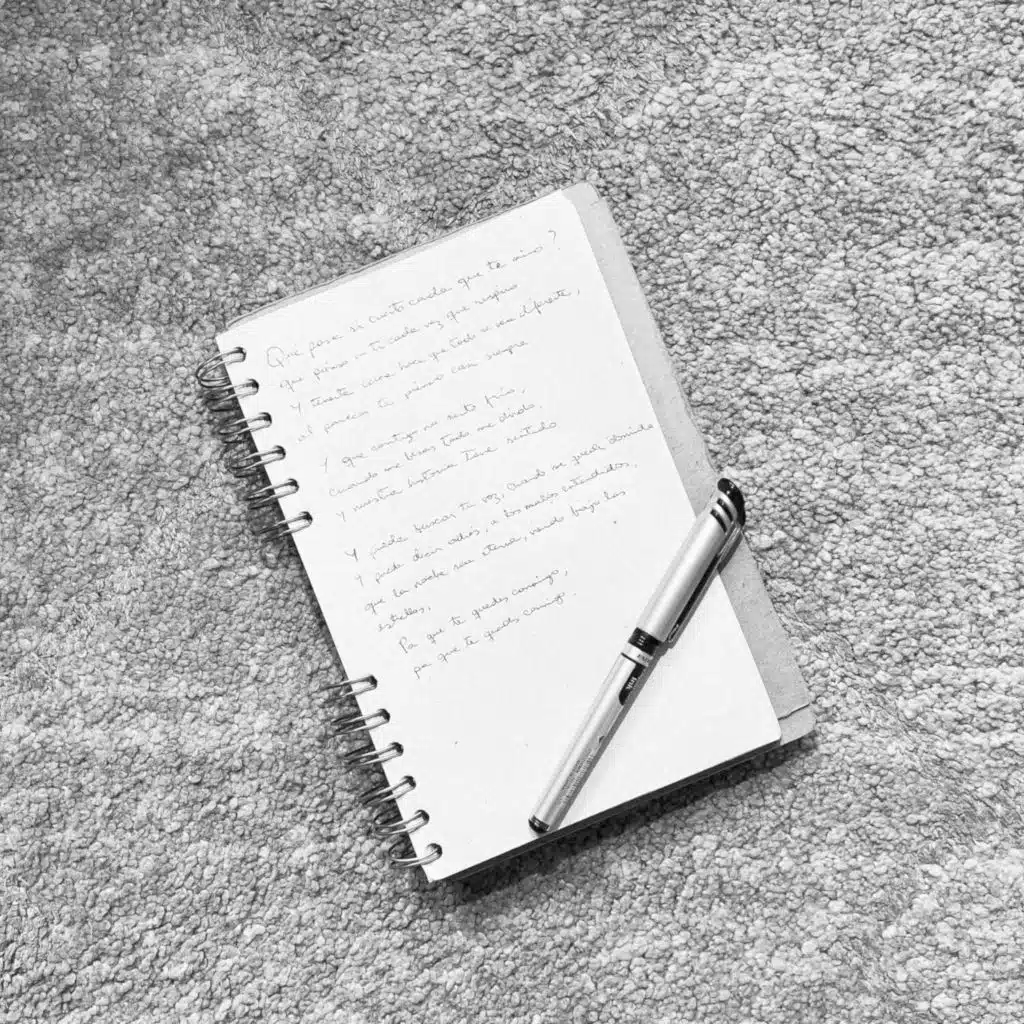 Que pasa si cuento cada que te miro?
que pienso en ti cada vez que respiro
Y tenerte cerca hace que todo se vea diferente,
al parecer tu y casi siempre
Y que contigo no siento frío,
cuando me besas todo me olvido,
y nuestra historia tiene sentido
Y pude buscar tu voz, cuando me quedé dormido
Y pude decir adiós, a los malos entendidos,
que la noche sea eterna, viendo bajo las
estrellas,
Pa que te quedes conmigo,
pa que te quedes conmigo.
ink